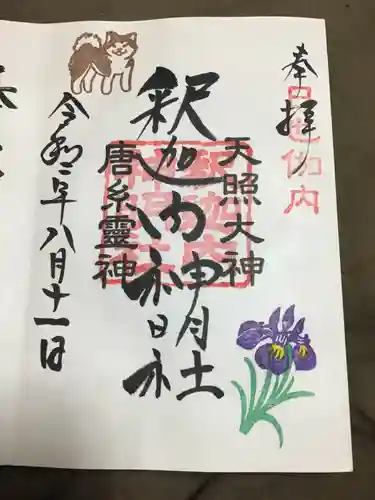 奉拝
日迦伽内
天照大神
釈迦内神明社
唐糸靈神
令和二年八月十一日